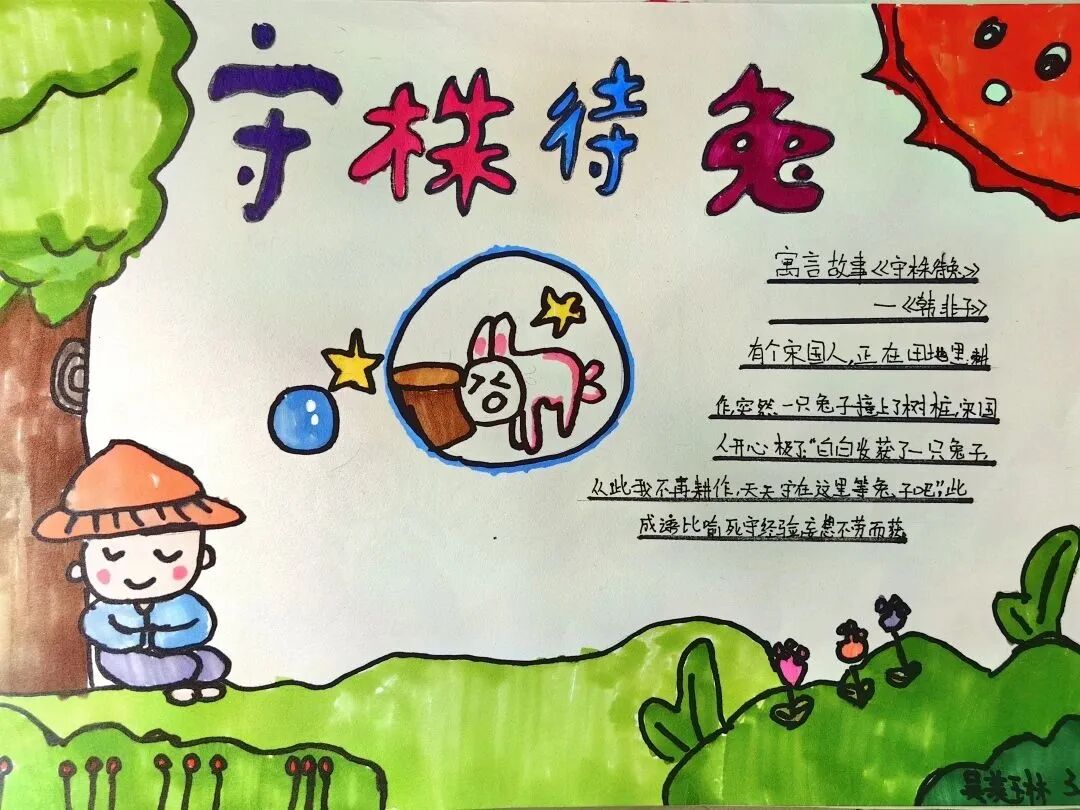 守株待兔
寓言故事《守株待兔》
—《韩非子》
有个宋国人,正在田地里耕
作,突然,一只兔子撞上了树桩,宋国
人开心极了“白白收获了一只兔子,
从此我不再耕作,天天守在这里等兔子吧”,此
成语比喻死守经验妄想不劳而获
吴美琳 3